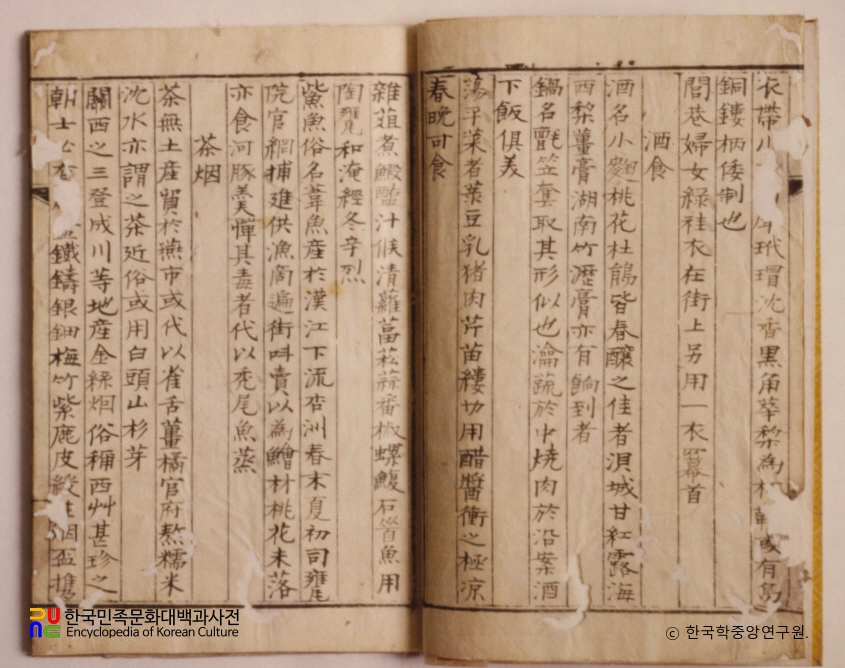 衣帶小 玳瑁沈香黑角華梨為 或有烏
銅鏤柄倭制也
閭巷婦女綠袿衣在街上另用一衣冪首
酒食
酒名小麴桃花杜鵑皆春釀之佳者浿城甘紅露海
西梨薑膏湖南竹瀝膏亦有餉到者
鍋名氈笠套取其形似也瀹蔬於中燒肉於沿案酒
下飯俱美
蕩子菜者菉豆乳猪肉芹苗縷切用醋醬衝之極凉
春晚可食
雜菹煮鰕醢汁候清蘿葍菘蒜番椒螺鰒石首魚用
陶甕和淹經冬辛烈
鮆魚俗名葦魚產於漢江下流杏洲春末夏初司饔
院官網捕進供漁商遍街叫賣以為鱠材桃花未落
亦食河豚羹憚其毒者代以禿尾魚蒸
茶烟
茶無土產貿於燕市或代以雀舌薑橘官府熬糯米
沈水亦謂之茶近俗或用白頭山杉芽
關西之三登成川等地產金絲烟俗稱西艸甚珍之
朝士 鐵鑄銀鈿梅竹紫鹿皮 烟盃
한국민족문화대백과사전
Encyclopedia of Korean Culture
ⓒ 한국학중앙연구원.